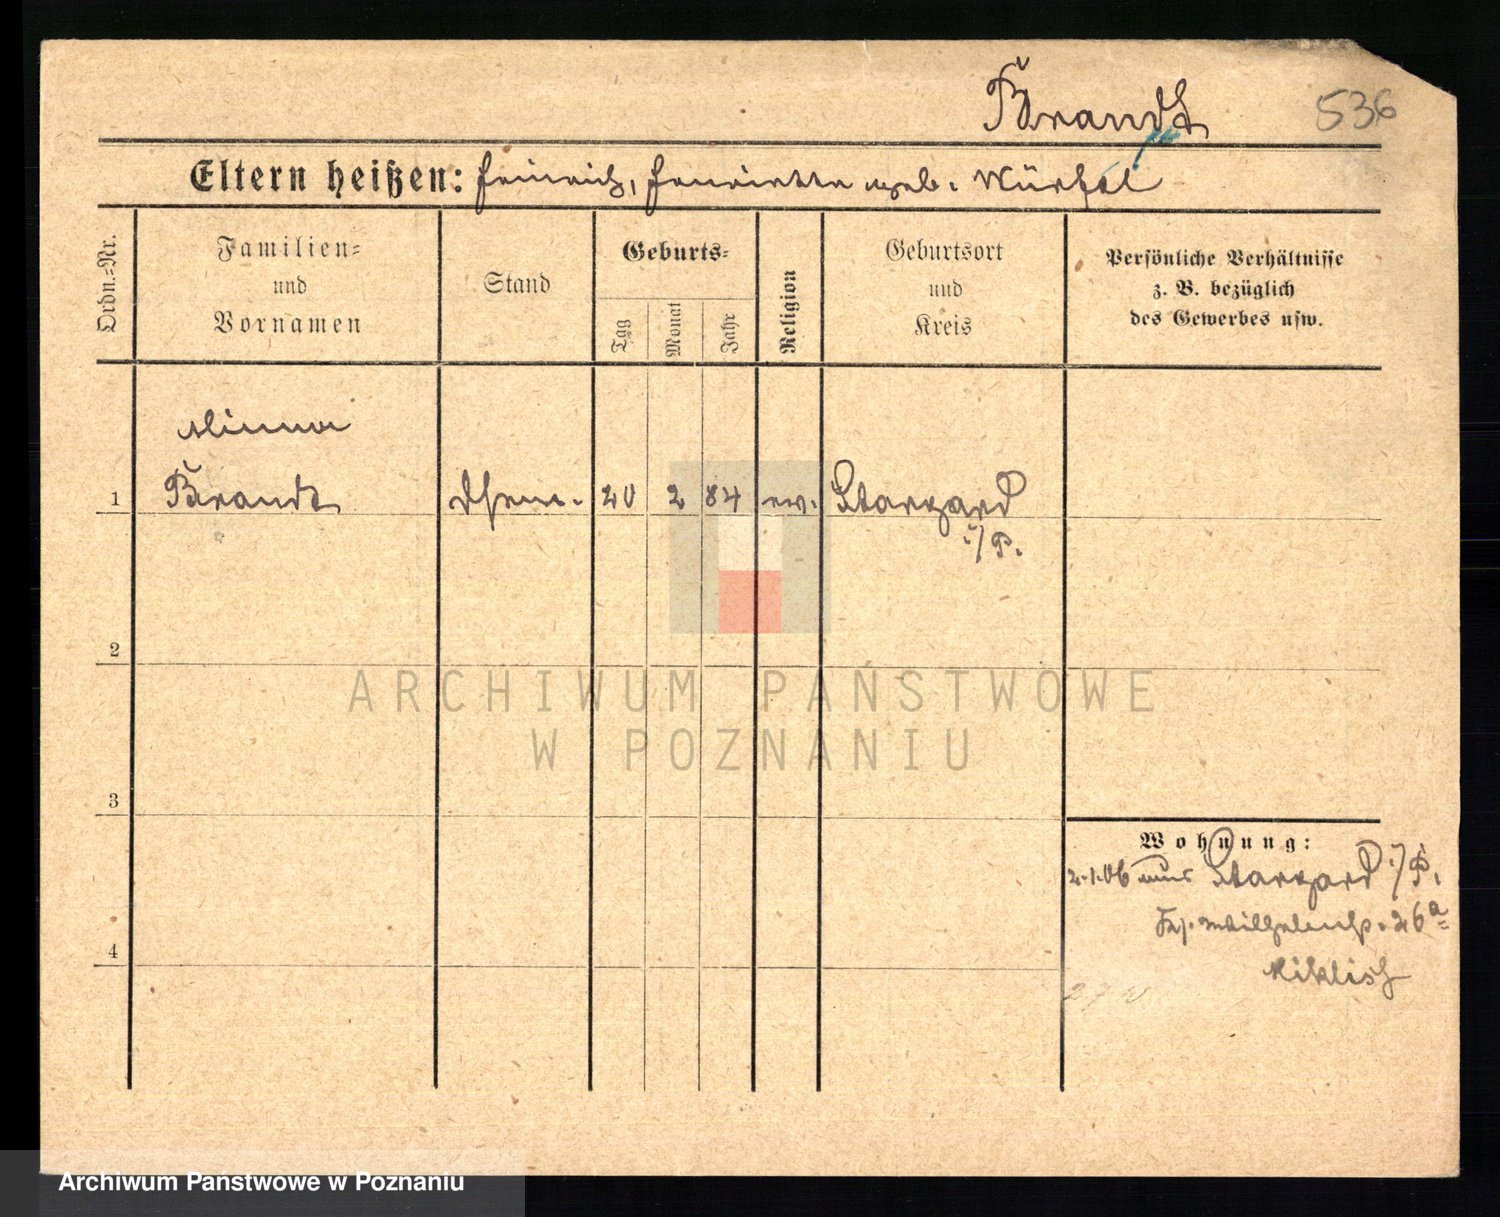 Brandt 536
Eltern heißen: Heinrich, Henriette geb. Würfel
Ordn.=Nr.
Familien=
und
Vornamen
Stand
Geburts=
Tag
Monat
Jahr
Religion
Geburtsort
und
Kreis
Persönliche Verhältnisse
z. B. bezüglich
des Gewerbes usw.
Minna
1 Brandt 20 2 84 ev. Stargard
i/P.
2
ARCHIWUM PAŃSTWOWE
W POZNANIU
3
Wohnung:
2.1.06 aus Stargard i/P.
26a
4
Archiwum Państwowe w Poznaniu